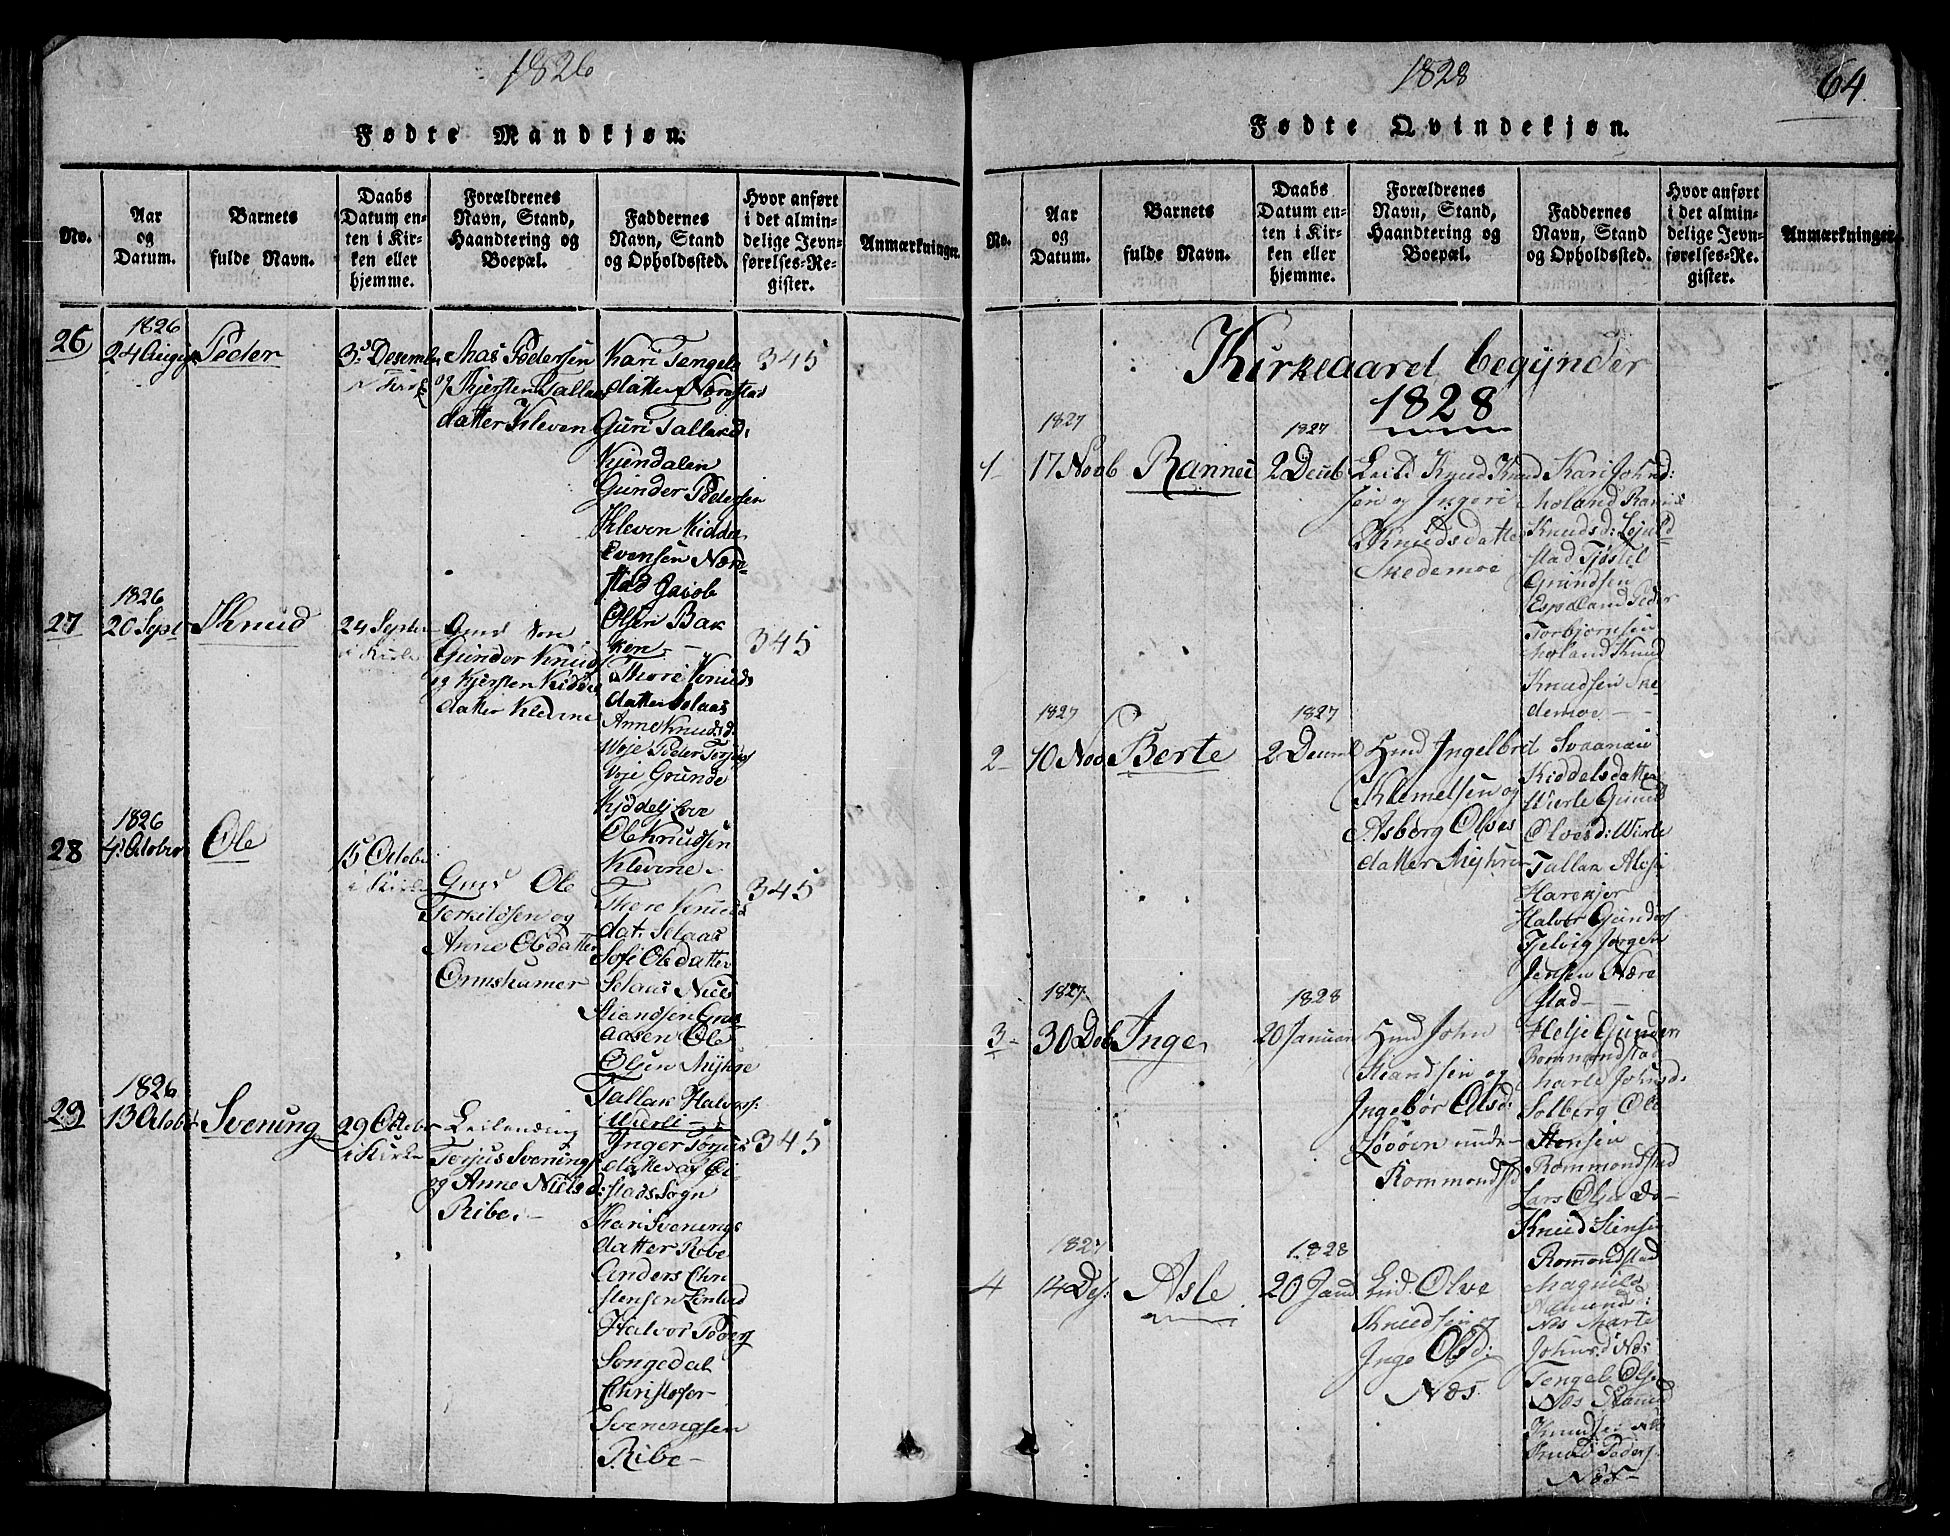 1826
Fødte Mandkjøn.
No.
Aar
og
Datum.
Barnets
fulde Navn.
Daabs
Datum en-
ten i Kir-
ken eller
hjemme.
Forældrenes
Navn, Stand,
Haandtering og
Boepæl.
Faddernes
Navn, Stand
og Opholdssted.
Hvor anført
i det almin-
delige Jevn-
førelses-Re-
gister.
Anmærkninger.
26
1826
24 August
Peder
3 Desembr
i Kirk
Aas Pedersen
og Kjersten Tallax
datter Kleven
Kari Tengels
datter Nærestad
Guri Tallaxd:
Kjendalen
Gunder Pedersen
Kleven Kiddel
Evensen Nære
stad Jacob
Olsen Bak
ken
345
27
1826
20 Sept
Knud
24 Septem
i Kirk
Gmd
Gunder Knuds
og Kjersten Kiddels
datter Klevene
Thore Knuds
datter Selaas
Anne Knudsd.
Woje Peder Torjus
Voje Grunde
Kiddelsen
Ole Knudsen
Klevene
345
28
1826
4 October
Ole
15 Octobr
i Kirk
Gmd Ole
Terkildsen og
Anne Olsdatter
Ormshamer
Thore Knuds
dat: Selaas
Sofe Olsdatter
Selaas Niels
Stiandsen
aasen Ole
Olsen Myhre
Tallak Halvors:
Wierle
345
29
1826
13 October
Svenung
29 Octobr
i Kirke
Leilending
Torjus Svenungs
og Anne Nielsd:
Ribe.
Inger Torjus
datter af Gi
stads Sogn
Kari Svenungs
datter Ribe
Anders Chri
stensen Linland
Halvor Peders
Songedal
Christofer
Svenungsen
Ribe
345
1828
64.
Fødte Qvindekjøn.
No.
Aar
og
Datum.
Barnets
fulde Navn.
Daabs
Datum en-
ten i Kir-
ken eller
hjemme.
Forældrenes
Navn, Stand,
Haandtering og
Boepæl.
Faddernes
Navn, Stand
og Opholdssted.
Hvor anført
i det almin-
delige Jevn-
førelses-Re-
gister.
Anmærkninger.
Kirkeaaret begynder
1828
1
1827
17 Novb
Rannei
1827
2 Decb
Leild Knud Knud
sen og Ingeri
Knudsdatter
Skedemoe
Kari Johnd:
Moland Rannei
Knudsd:
stad Tjøstel
Grundsen
Espeland Peder
Torbjornsen
Moland Knud
Knudsen Ske
demoe
2
1827
10 Nov
Berte
1827
2 Decmb
Hmd Ingelbret
Klemetsen og
Asborg Olves
datter Myhren
Svaanaui
Kiddelsdatter
Wierle Gunild
Olvesd: Wierle
Tallak Alefsen
Harkjer
Halvor Gunders
Tjelvig Jørgen
Jensen Nære
stad
3
1827
30 Deb
Inge
1828
20 Januari
Hmd John
Stiandsen og
Ingebor Olsd:
Løvøen under
Rommondstd
Helje Gunders
Rommondstad
Marte Johnsd:
Solberg Ole
Stensen
Rommondstad
Lars Olsen Do
Knud Stensen
Romondstad
4
1827
14 Des:
Asle
1828
20 Janu
Leid. Olve
Knudsen og
Inge Olsd:
Næs.
Magnild
Amund:
Næs Marte
Johnsd Næs
Tengel Olsen
Næs Amund
Knudsen Næs
Knud Peders
Næs